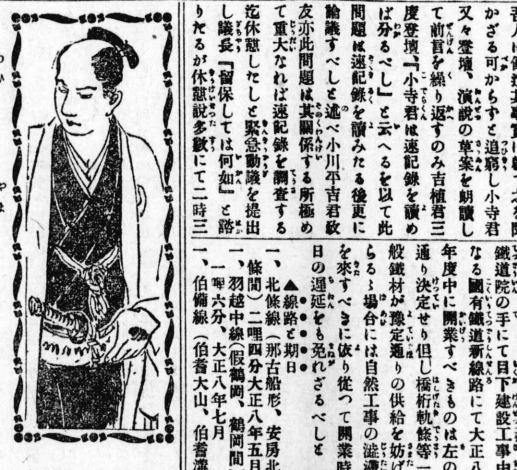 かざる可からずと追窮し小寺君
又々登壇、演説の草案を朗讀し
て前言を繰り返すのみ吉植君三
度登壇『小寺君は速記錄を讀め
ば分るべし』と云へるを以て此
問題は速記錄を讀みたる後更に
論議すべしと述べ小川平吉君
友亦此問題は其關係する所極め
て重大なれば速記錄を調査する
迄休憩したしと緊急動議を提出
し議長『留保しては何如』と諮
りたるが休憩說多數にて二時三
鐵道院の手にて目下建設工事中
なる國有鐵道新線路にて大正八
年度中に開業すべきものは左の
通り決定せり但し橋桁軌條等
般鐵材が豫定通りの供給を妨げ
らるゝ場合には自然工事の澁滯
を來すべきに依り從つて開業時
日の遲延をも免れざるべしと
▲線路と期日
一、北條線(那古船形、安房北
條間)二哩四分大正八年五月
一、羽越中線(假鶴岡、鶴岡間
一哩六分、大正八年七月
一、伯備線(伯耆大山、伯耆溝